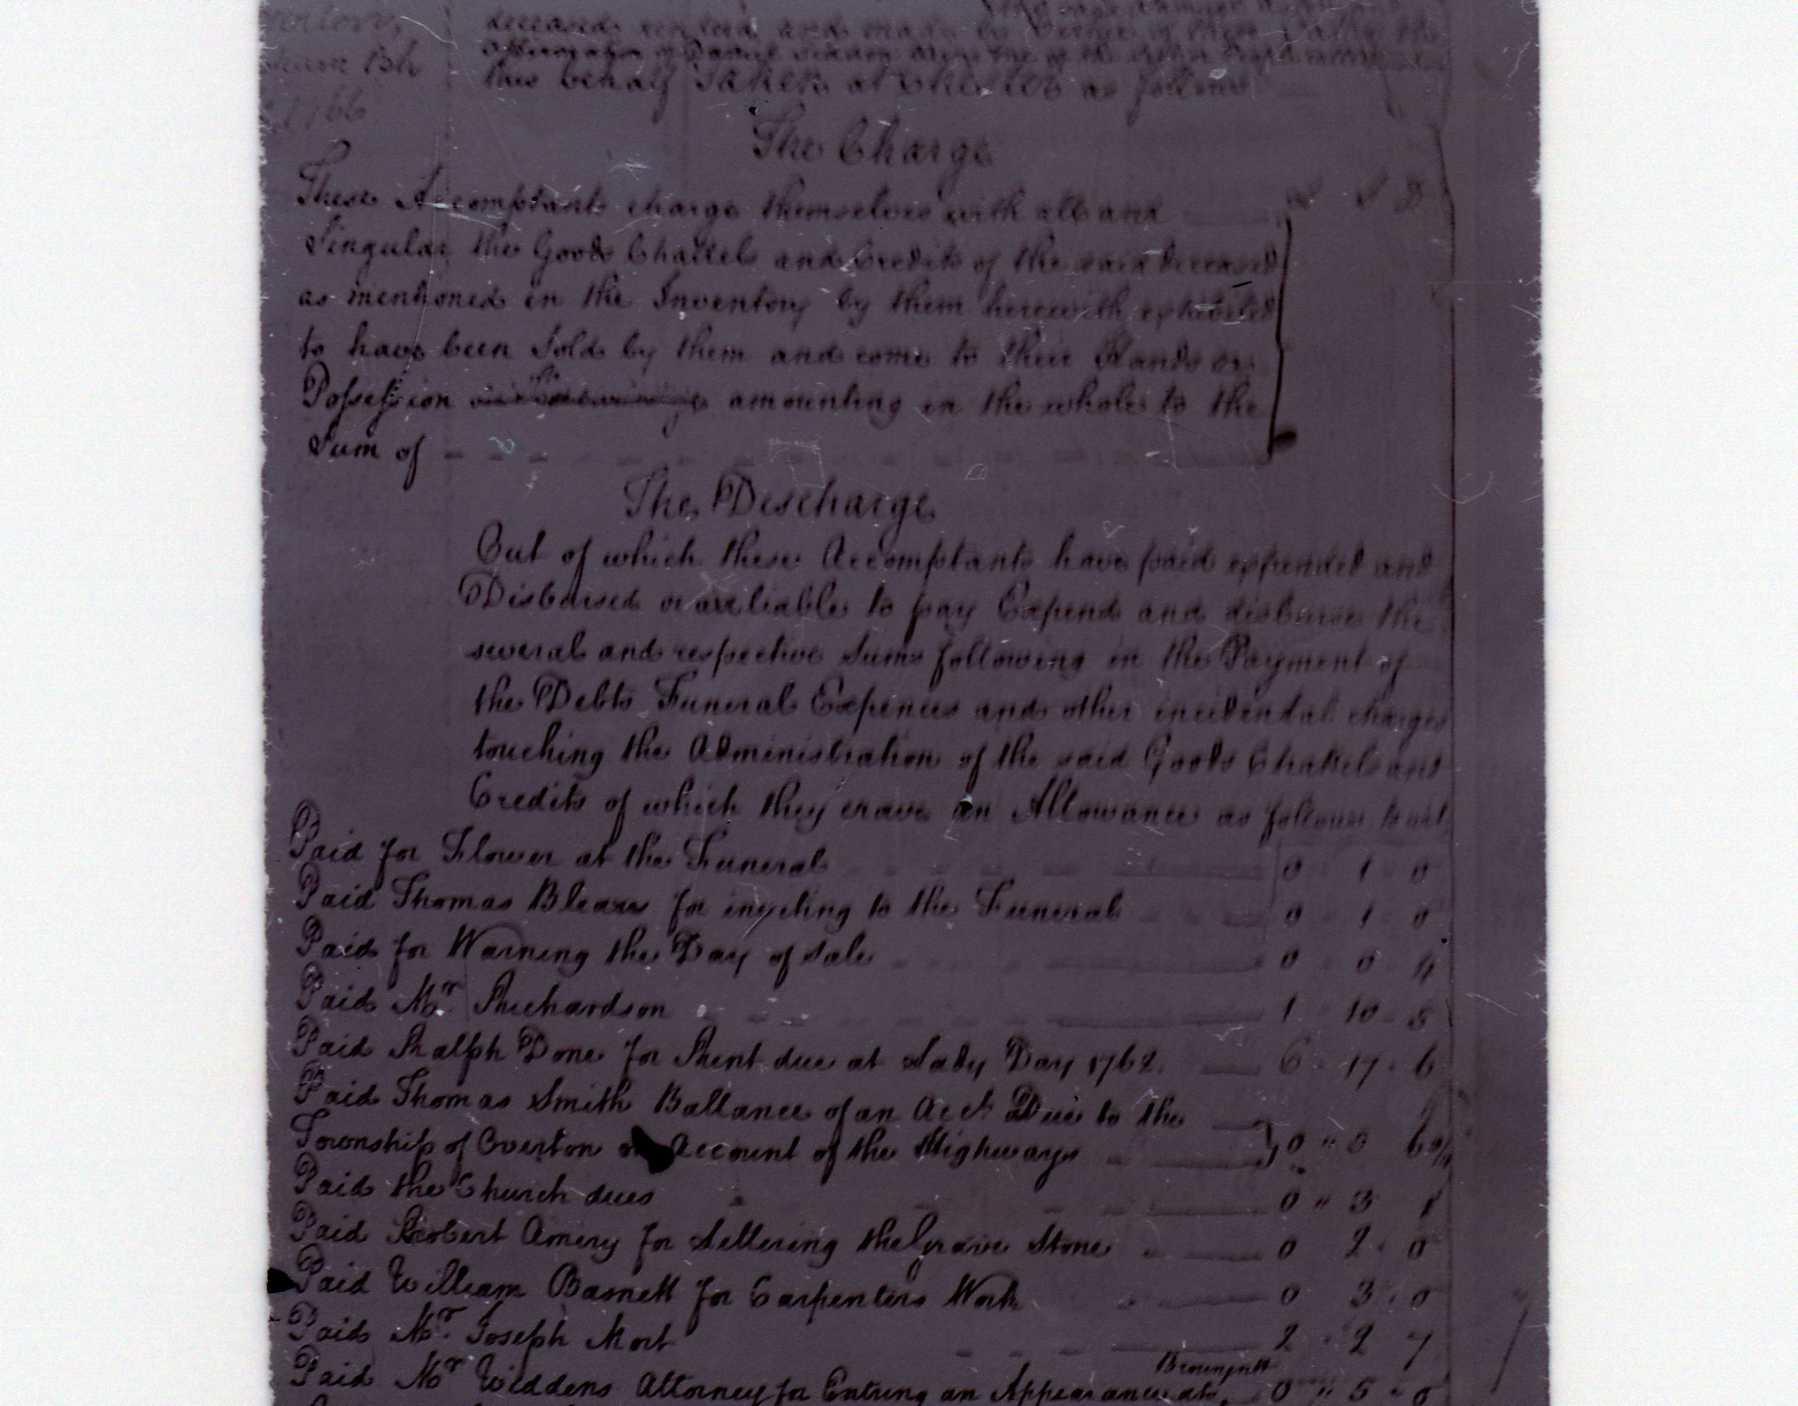 1766
this behalf taken at Chester as follows
The Charge
These Accomptants charge themselves with all and
Singular the Goods Chattels and Credits of the said deceased
as mentioned in the Inventory by them herewith exhibited
to have been Sold by them and come to their Hands or
Possession amounting in the whole to the
Sum of
The Discharge
Out of which these Accomptants have paid expended and
Disbursed or are liable to pay Expend and disburse the
several and respective Sums following in the Payment of
the Debts Funeral Expences and other incidental charges
touching the Administration of the said Goods Chattels and
Credits of which they crave an Allowance as follows to wit
Paid for Flower at the Funeral 0 1 0
Paid Thomas Blears for inviting to the Funeral 0 1 0
Paid for Warning the Day of Sale 0 0 4
Paid Mr Richardson 1 10 8
Paid Ralph Done for Rent due at Lady Day 1762 6 17 6
Paid Thomas Smith Ballance of an Acct Due to the
Township of Overton on Account of the Highways 0 " 0 6
Paid the Church dues 0 " 3 1
Paid Robert Amery for Lettering the Grave Stone 0 2 0
Paid William Basnett for Carpenters Work 0 3 0
Paid Mr Joseph Mort 2 2 7
Paid Mr Widdens Attorney for Entring an Appearance 0 " 5 0